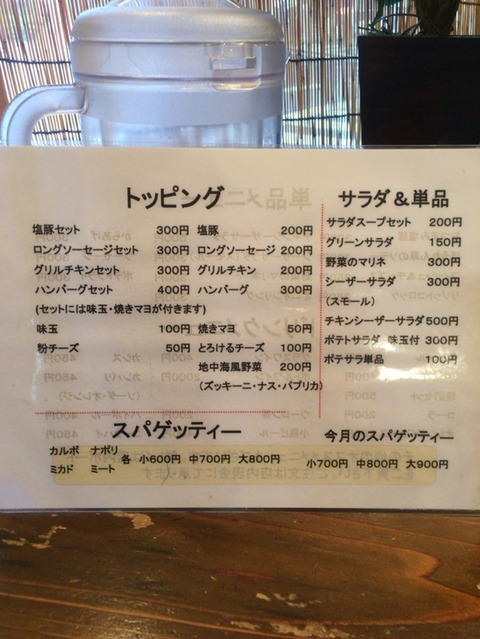 トッピング
塩豚セット 300円 塩豚 200円
ロングソーセージセット 300円 ロングソーセージ 200円
グリルチキンセット 300円 グリルチキン 200円
ハンバーグセット 400円 ハンバーグ 300円
(セットには味玉・焼きマヨが付きます)
味玉 100円 焼きマヨ 50円
粉チーズ 50円 とろけるチーズ 100円
地中海風野菜 200円
(ズッキーニ・ナス・パプリカ)
サラダ&単品
サラダスープセット 200円
グリーンサラダ 150円
野菜のマリネ 300円
シーザーサラダ 300円
(スモール)
チキンシーザーサラダ 500円
ポテトサラダ 味玉付 300円
ポテサラ単品 100円
スパゲッティー
カルボ ナポリ
ミカド ミート
各 小600円 中700円 大800円
今月のスパゲッティー
小700円 中800円 大900円